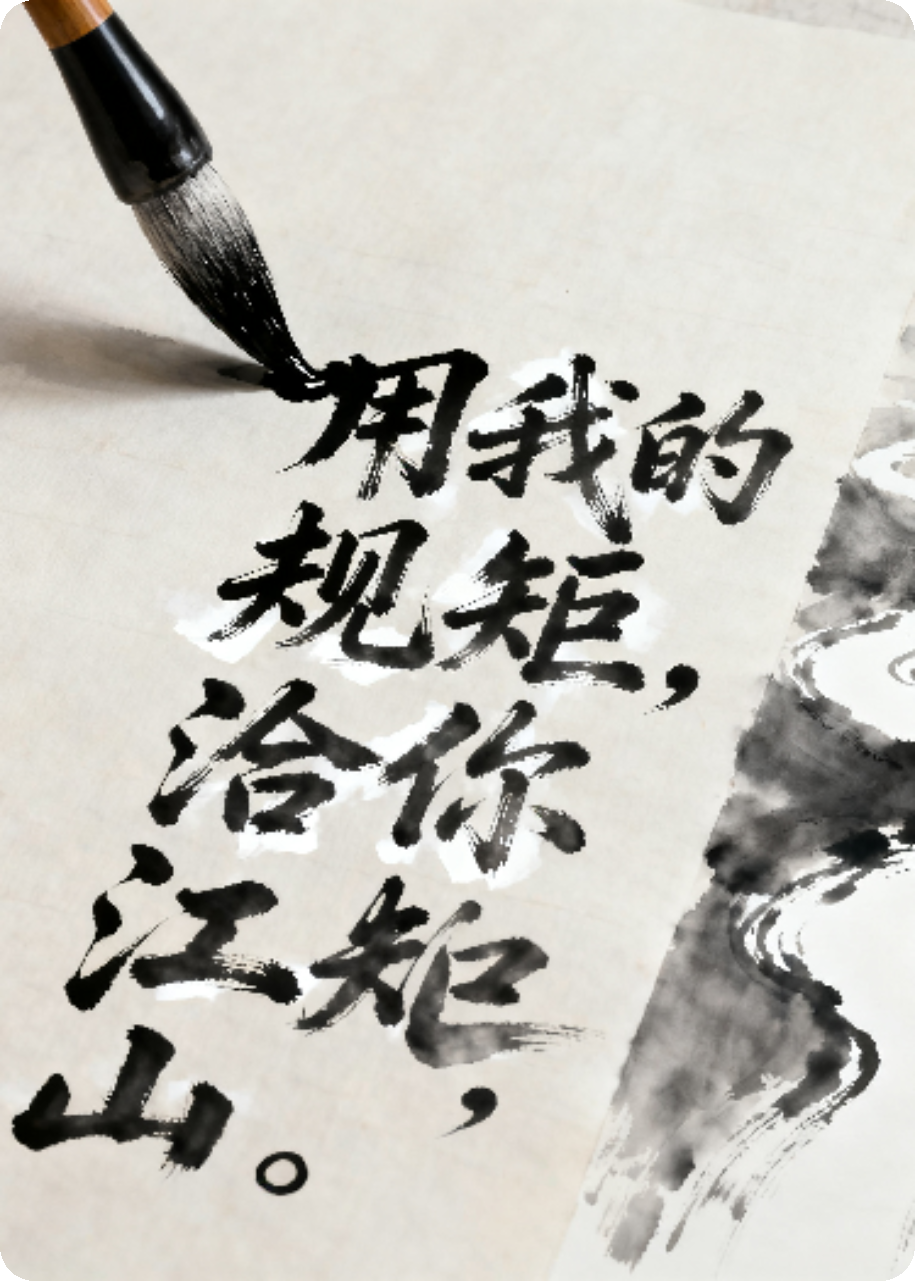 用我的
规矩，
洽你
江矩，
山。